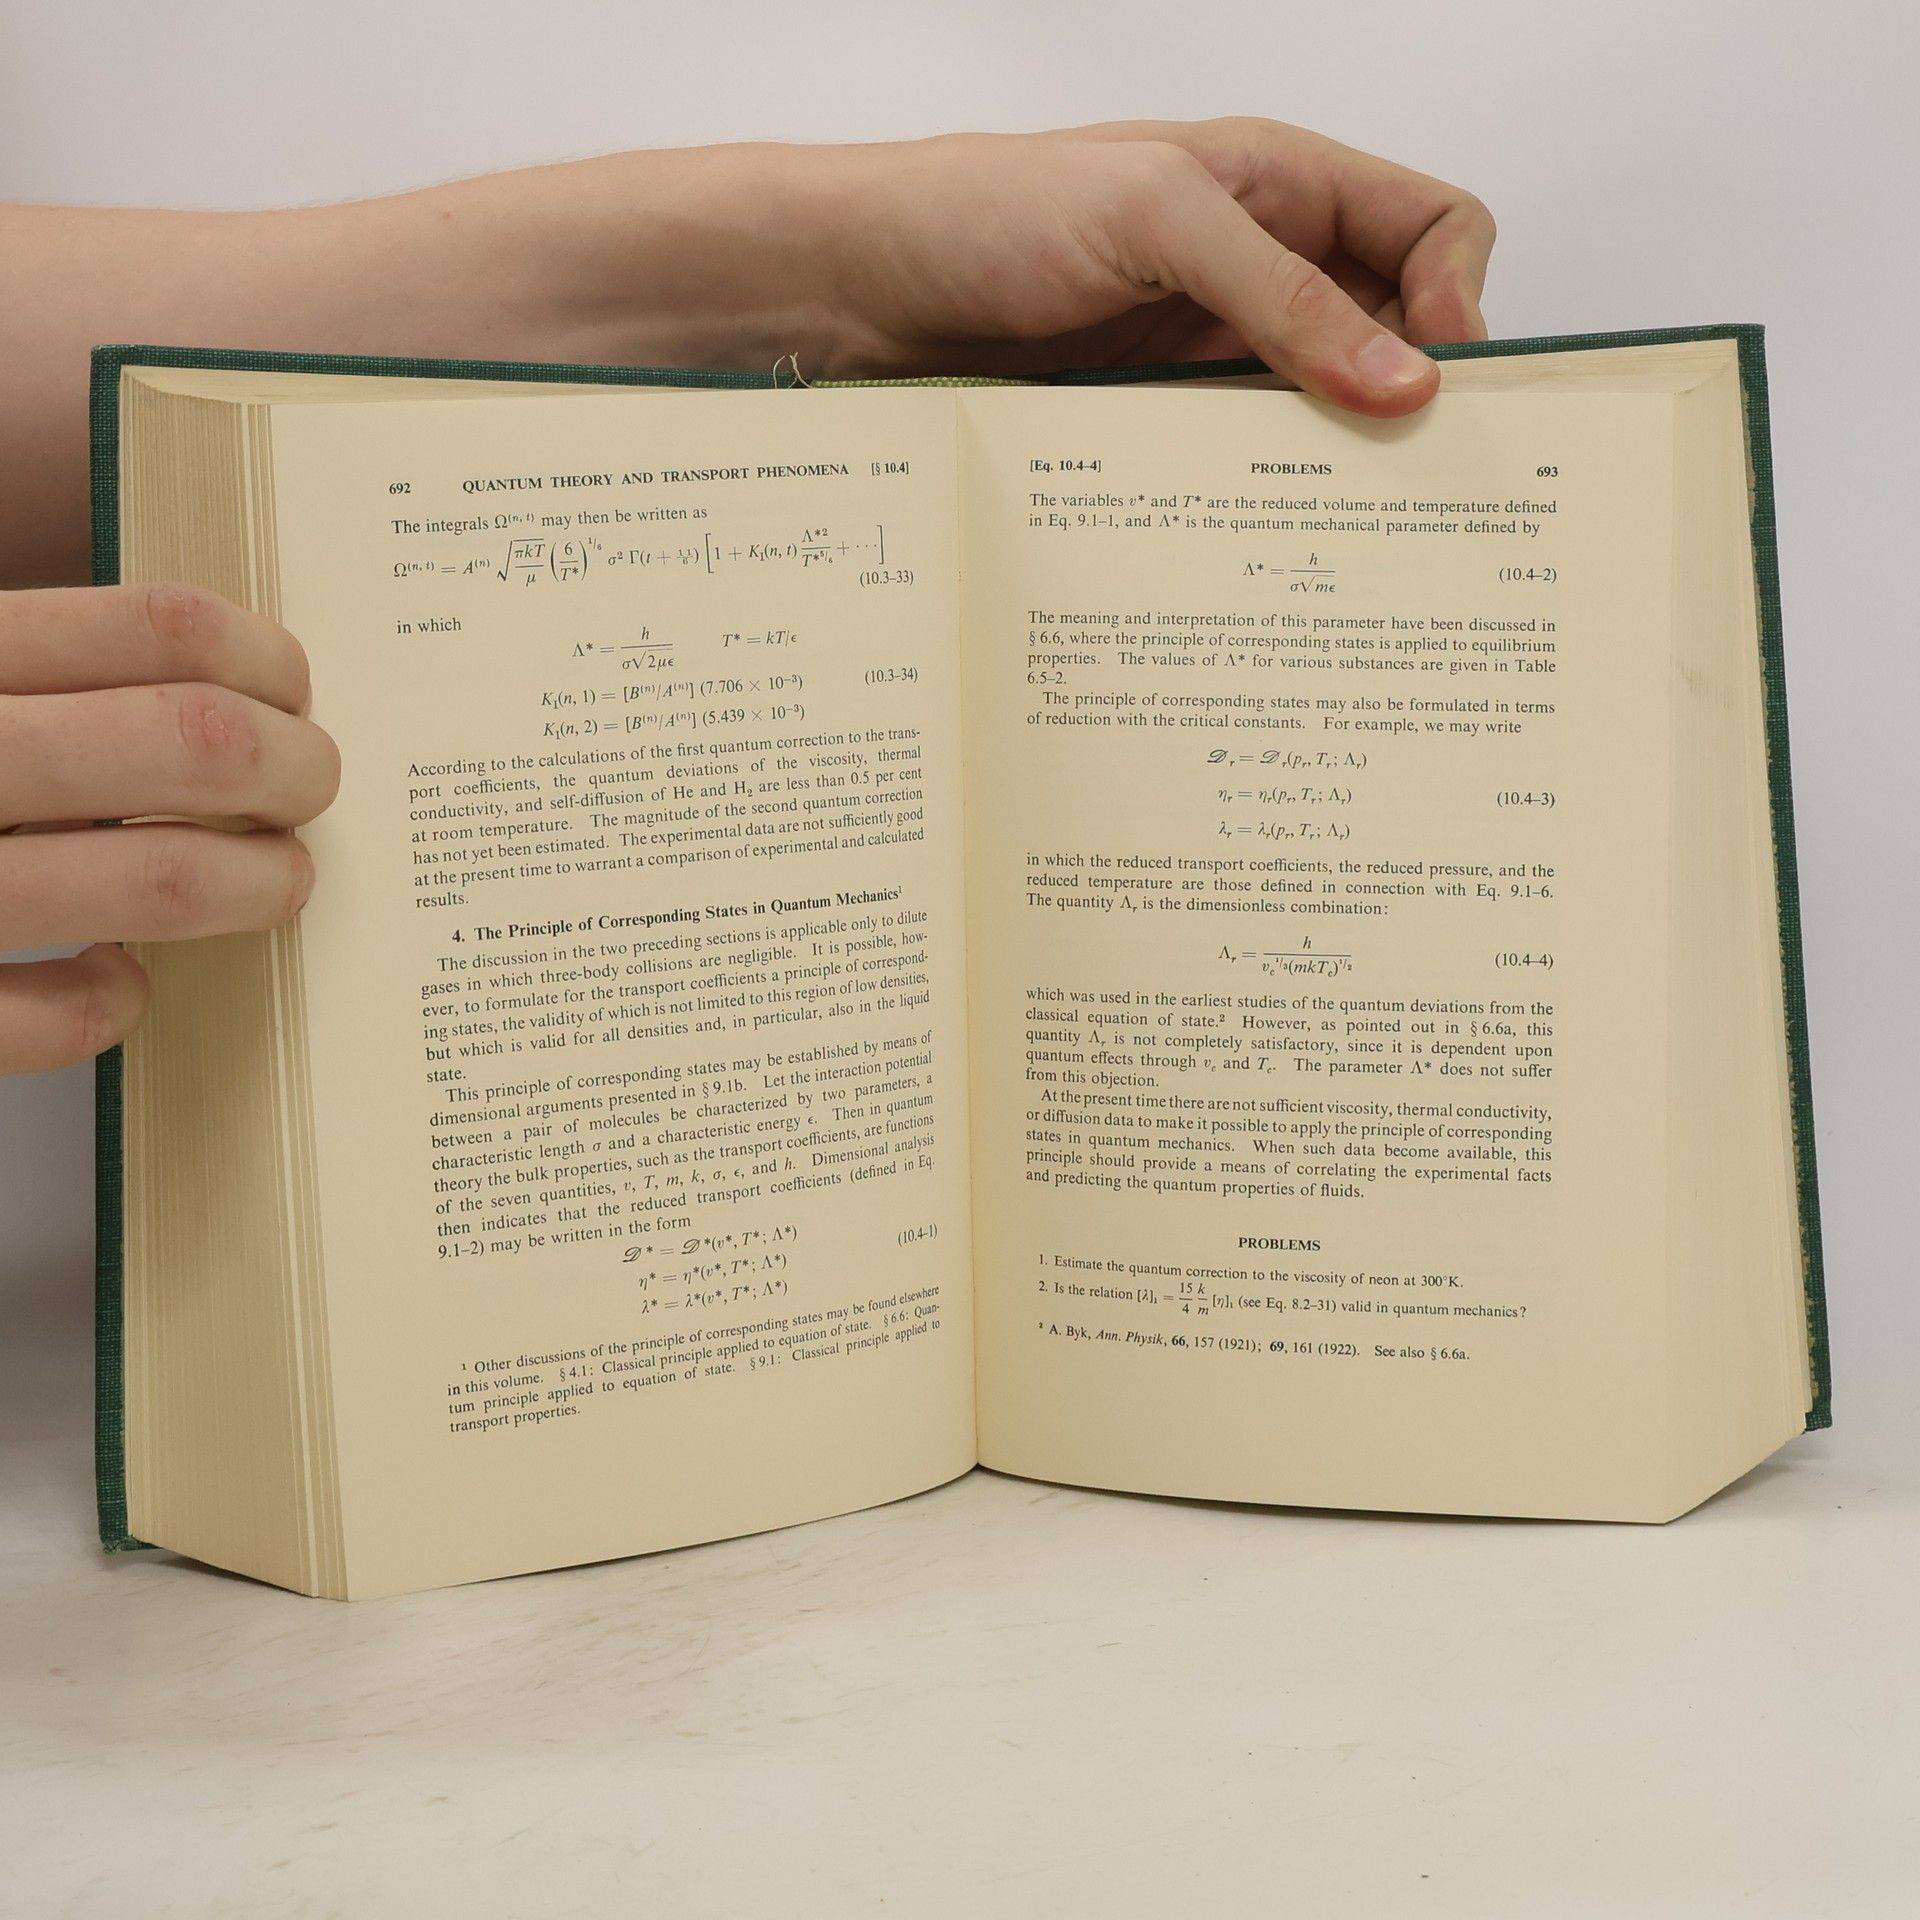 692 QUANTUM THEORY AND TRANSPORT PHENOMENA [§ 10.4]
The integrals Ω(n, t) may then be written as
Ω(n, t) = A(n) √(πkT/μ) (6/T*)^1/6 σ² Γ(t + 11/6) [1 + K₁(n, t) Λ*2/T*5/6 + ···]
(10.3–33)
in which
Λ* = h/σ√2με T* = kT/ϵ
K₁(n, 1) = [B(n)/A(n)] (7.706 × 10⁻³) (10.3–34)
K₁(n, 2) = [B(n)/A(n)] (5.439 × 10⁻³)
According to the calculations of the first quantum correction to the trans-
port coefficients, the quantum deviations of the viscosity, thermal
conductivity, and self-diffusion of He and H₂ are less than 0.5 per cent
at room temperature. The magnitude of the second quantum correction
has not yet been estimated. The experimental data are not sufficiently good
at the present time to warrant a comparison of experimental and calculated
results.
4. The Principle of Corresponding States in Quantum Mechanics¹
The discussion in the two preceding sections is applicable only to dilute
gases in which three-body collisions are negligible. It is possible, how-
ever, to formulate for the transport coefficients a principle of correspond-
ing states, the validity of which is not limited to this region of low densities,
but which is valid for all densities and, in particular, also in the liquid
state.
This principle of corresponding states may be established by means of
dimensional arguments presented in § 9.1b. Let the interaction potential
between a pair of molecules be characterized by two parameters, a
characteristic length σ and a characteristic energy ϵ. Then in quantum
theory the bulk properties, such as the transport coefficients, are functions
of the seven quantities, v, T, m, k, σ, ϵ, and h. Dimensional analysis
then indicates that the reduced transport coefficients (defined in Eq.
9.1–2) may be written in the form
𝒟* = 𝒟*(v*, T*; Λ*) (10.4–1)
η* = η*(v*, T*; Λ*)
λ* = λ*(v*, T*; Λ*)
¹ Other discussions of the principle of corresponding states may be found elsewhere
in this volume. § 4.1: Classical principle applied to equation of state. § 6.6: Quan-
tum principle applied to equation of state. § 9.1: Classical principle applied to
transport properties.
[Eq. 10.4–4] PROBLEMS 693
The variables v* and T* are the reduced volume and temperature defined
in Eq. 9.1–1, and Λ* is the quantum mechanical parameter defined by
Λ* = h/σ√mϵ (10.4–2)
The meaning and interpretation of this parameter have been discussed in
§ 6.6, where the principle of corresponding states is applied to equilibrium
properties. The values of Λ* for various substances are given in Table
6.5–2.
The principle of corresponding states may also be formulated in terms
of reduction with the critical constants. For example, we may write
𝒟ᵣ = 𝒟ᵣ(pᵣ, Tᵣ; Λᵣ)
ηᵣ = ηᵣ(pᵣ, Tᵣ; Λᵣ) (10.4–3)
λᵣ = λᵣ(pᵣ, Tᵣ; Λᵣ)
in which the reduced transport coefficients, the reduced pressure, and the
reduced temperature are those defined in connection with Eq. 9.1–6.
The quantity Λᵣ is the dimensionless combination:
Λᵣ = h/v_c^1/3(mkT_c)^1/2 (10.4–4)
which was used in the earliest studies of the quantum deviations from the
classical equation of state.² However, as pointed out in § 6.6a, this
quantity Λᵣ is not completely satisfactory, since it is dependent upon
quantum effects through v_c and T_c. The parameter Λ* does not suffer
from this objection.
At the present time there are not sufficient viscosity, thermal conductivity,
or diffusion data to make it possible to apply the principle of corresponding
states in quantum mechanics. When such data become available, this
principle should provide a means of correlating the experimental facts
and predicting the quantum properties of fluids.
PROBLEMS
1. Estimate the quantum correction to the viscosity of neon at 300°K.
2. Is the relation [λ]₁ = 15/4 k/m [η]₁ (see Eq. 8.2–31) valid in quantum mechanics?
² A. Byk, Ann. Physik, 66, 157 (1921); 69, 161 (1922). See also § 6.6a.